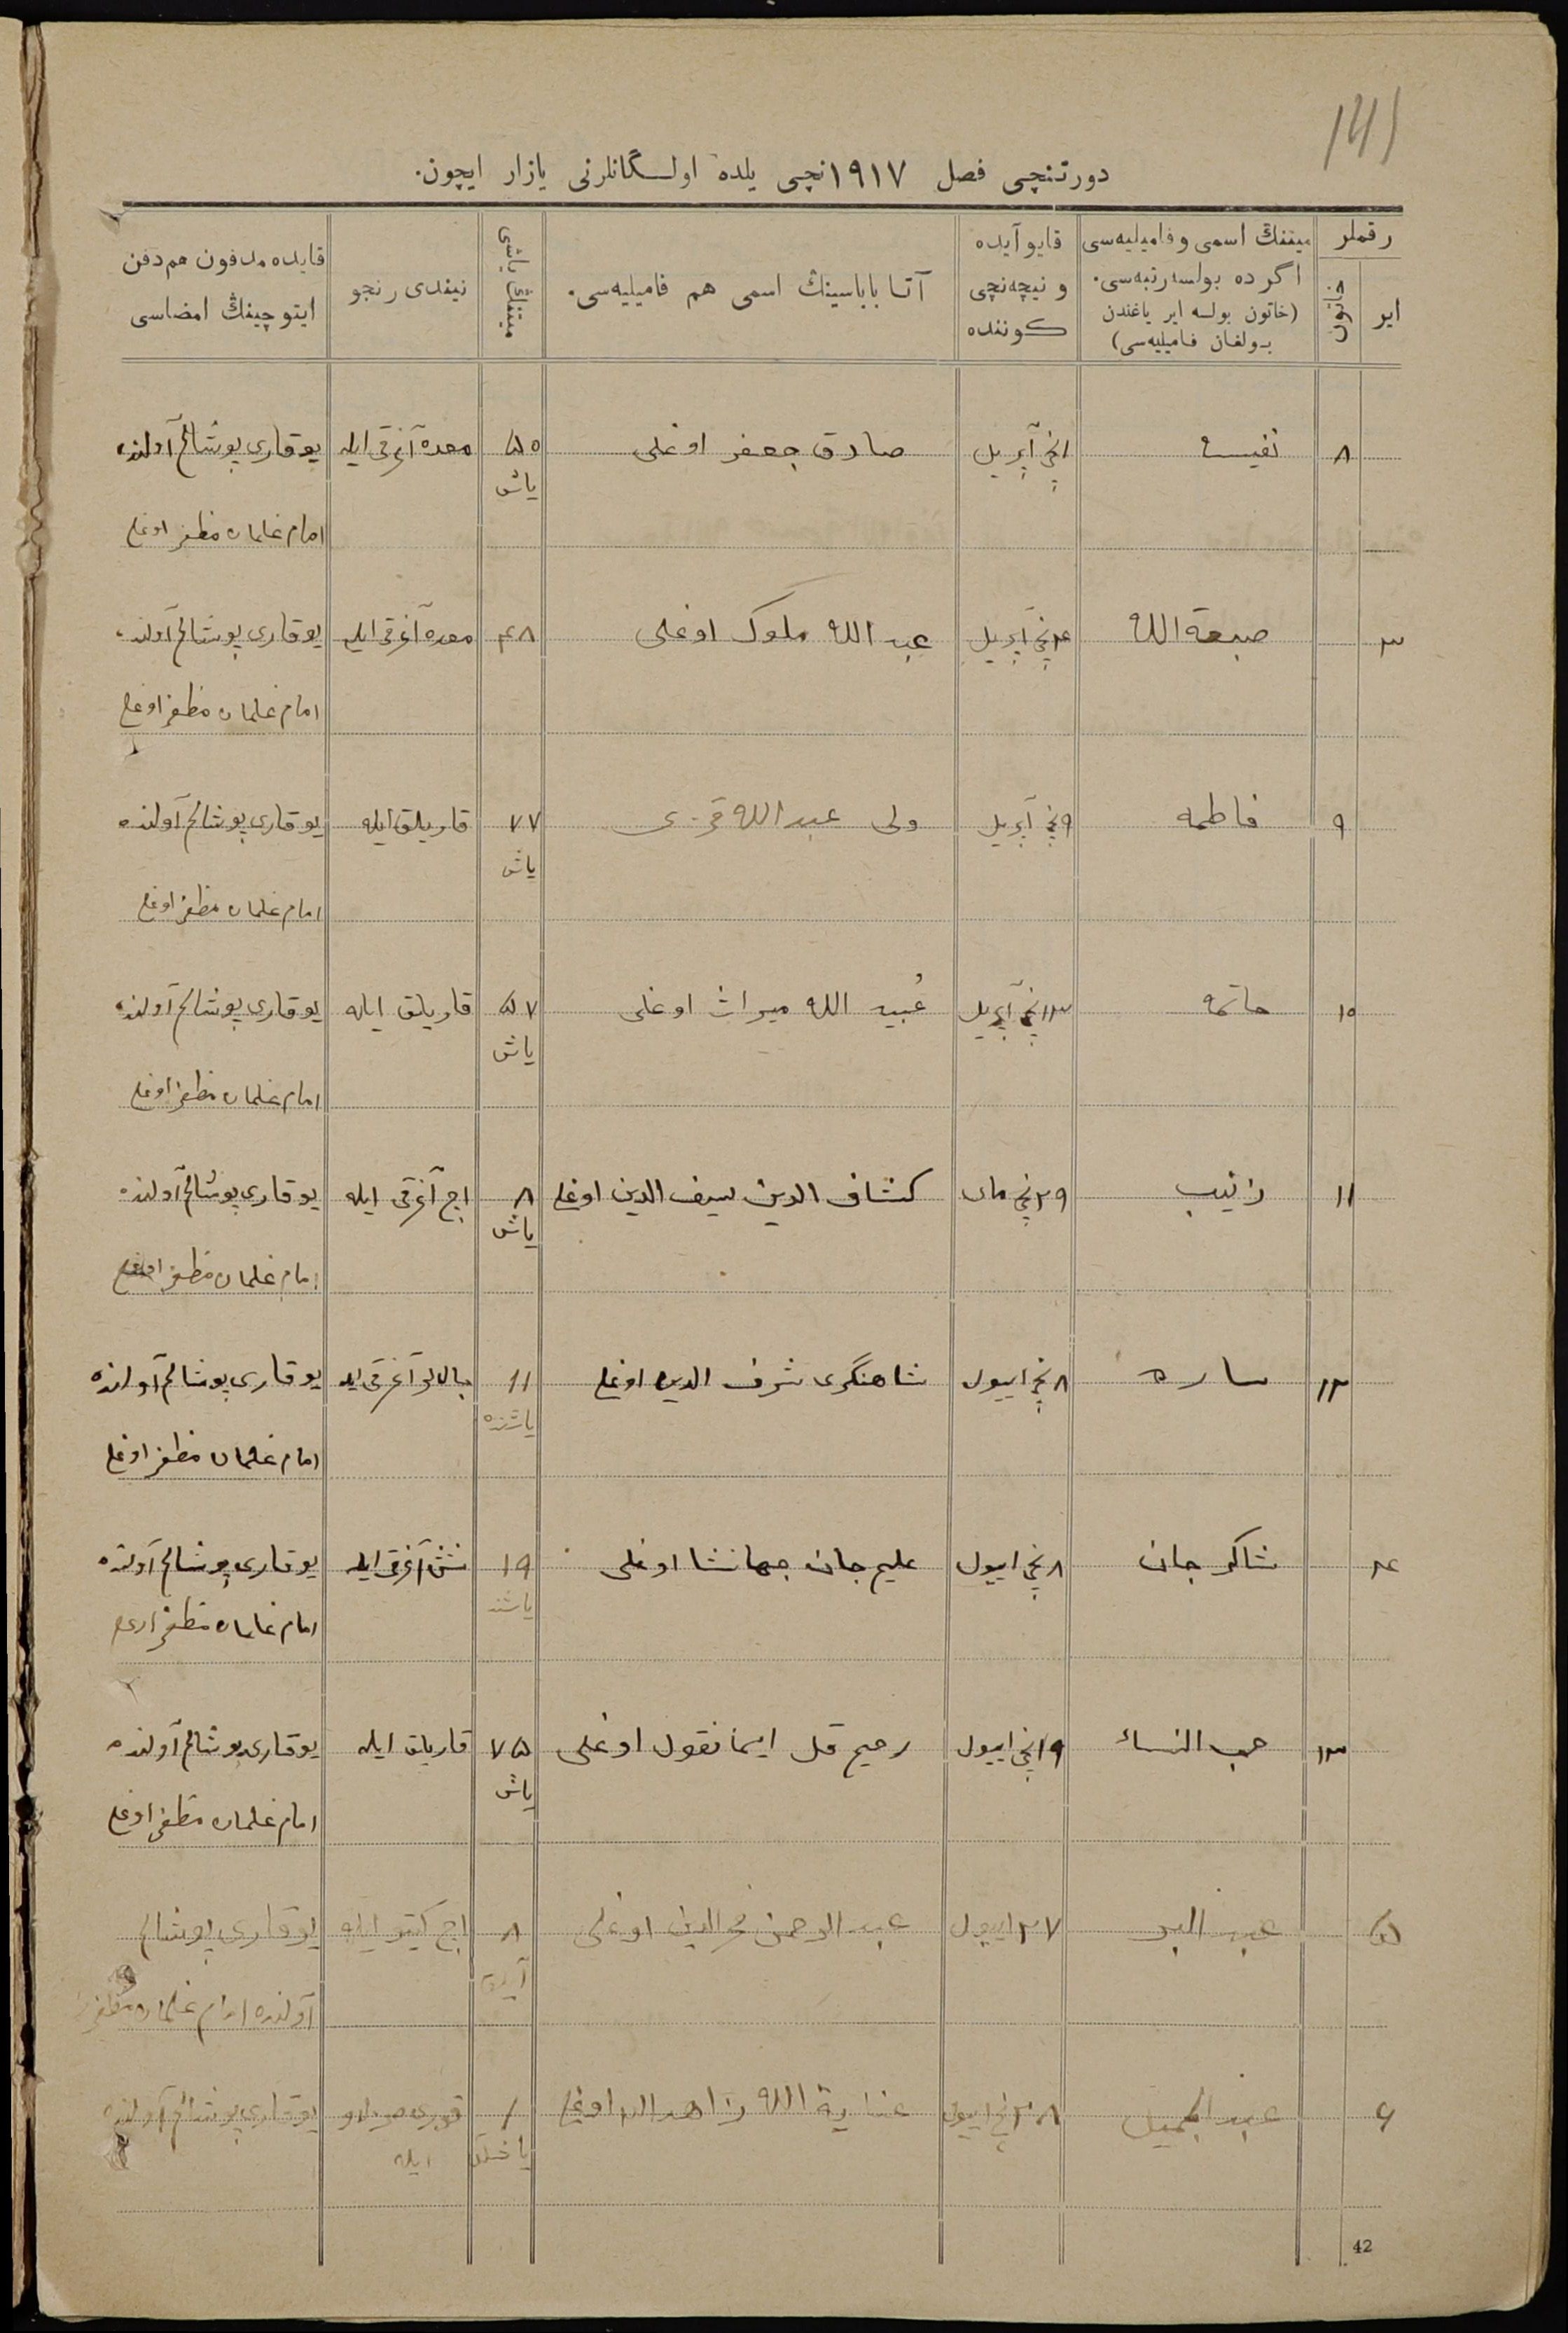 141
دورتنچی فصل ۱۹۱۷نچی یلده اولـگانلرنی یازار ایچون.
رقملر
ایر
خاتون
میتنڭ اسمی و فامیلیه‌سی
اگر ده بولسه رتبه‌سی.
(خاتون بولسه ایر یاغندن
بولغان فامیلیه‌سی)
قایو آیده
و نیچه‌نچی
کوننده
آتا باباسینڭ اسمی هم فامیلیه‌سی.
میتنڭ یاشی
نیندی رنجو
قایده مدفون هم دفن
ایتوچینڭ امضاسی
۸ نفیسه ۱نچی آپریل صادق جعفر اوغلی ۵۰ معده آغرقی ایله یوقاری پوشالم آولنده
یاش
امام غلمان مظفر اوغلی
۳ صبغة الله ۴نچی آپریل عبد الله ملوک اوغلی ۴۸ معده آغرقی ایله یوقاری پوشالم آولنده
امام غلمان مظفر اوغلی
۹ فاطمه ۹نچی آپریل ولی عبد الله قزی ۷۷ قارلق ایله یوقاری پوشالم آولنده
یاش
امام غلمان مظفر اوغلی
۱۰ حاتمه ۱۳نچی آپریل عُبید الله میراث اوغلی ۵۷ قارلق ایله یوقاری پوشالم آولنده
یاش
امام غلمان مظفر اوغلی
۱۱ زینب ۲۹نچی مای کشاف الدین سیف الدین اوغلی ۸ اچ آغرقی ایله یوقاری پوشالم آولنده
یاش
امام غلمان مظفر اوغلی
۱۲ ساره ۸نچی اییول شاهنگری شرف الدین اوغلی ۱۱ آغرقی ایله یوقاری پوشالم آولنده
یاشنده
امام غلمان مظفر اوغلی
۴ شاکر جان ۸نچی اییول علیم جان جهانشا اوغلی ۱۹ آغرقی ایله یوقاری پوشالم آولنده
یاشنده
امام غلمان مظفر
۱۳ حب النساء ۱۹نچی اییول رحیم قل ایمانقول اوغلی ۷۵ قارلق ایله یوقاری پوشالم آولنده
یاش
امام غلمان مظفر اوغلی
۵ عبد البر ۲۷ اییول عبد الرحمن فخر الدین اوغلی ۸ اچ کیتو ایله یوقاری پوشالم
آیلق
آولنده امام غلمان مظفر
۶ عبد الجمیل ۲۸نچی اییول عنایة الله زاهد الله اوغلی ۱ یوقاری پوشالم آولنده
ایله
42